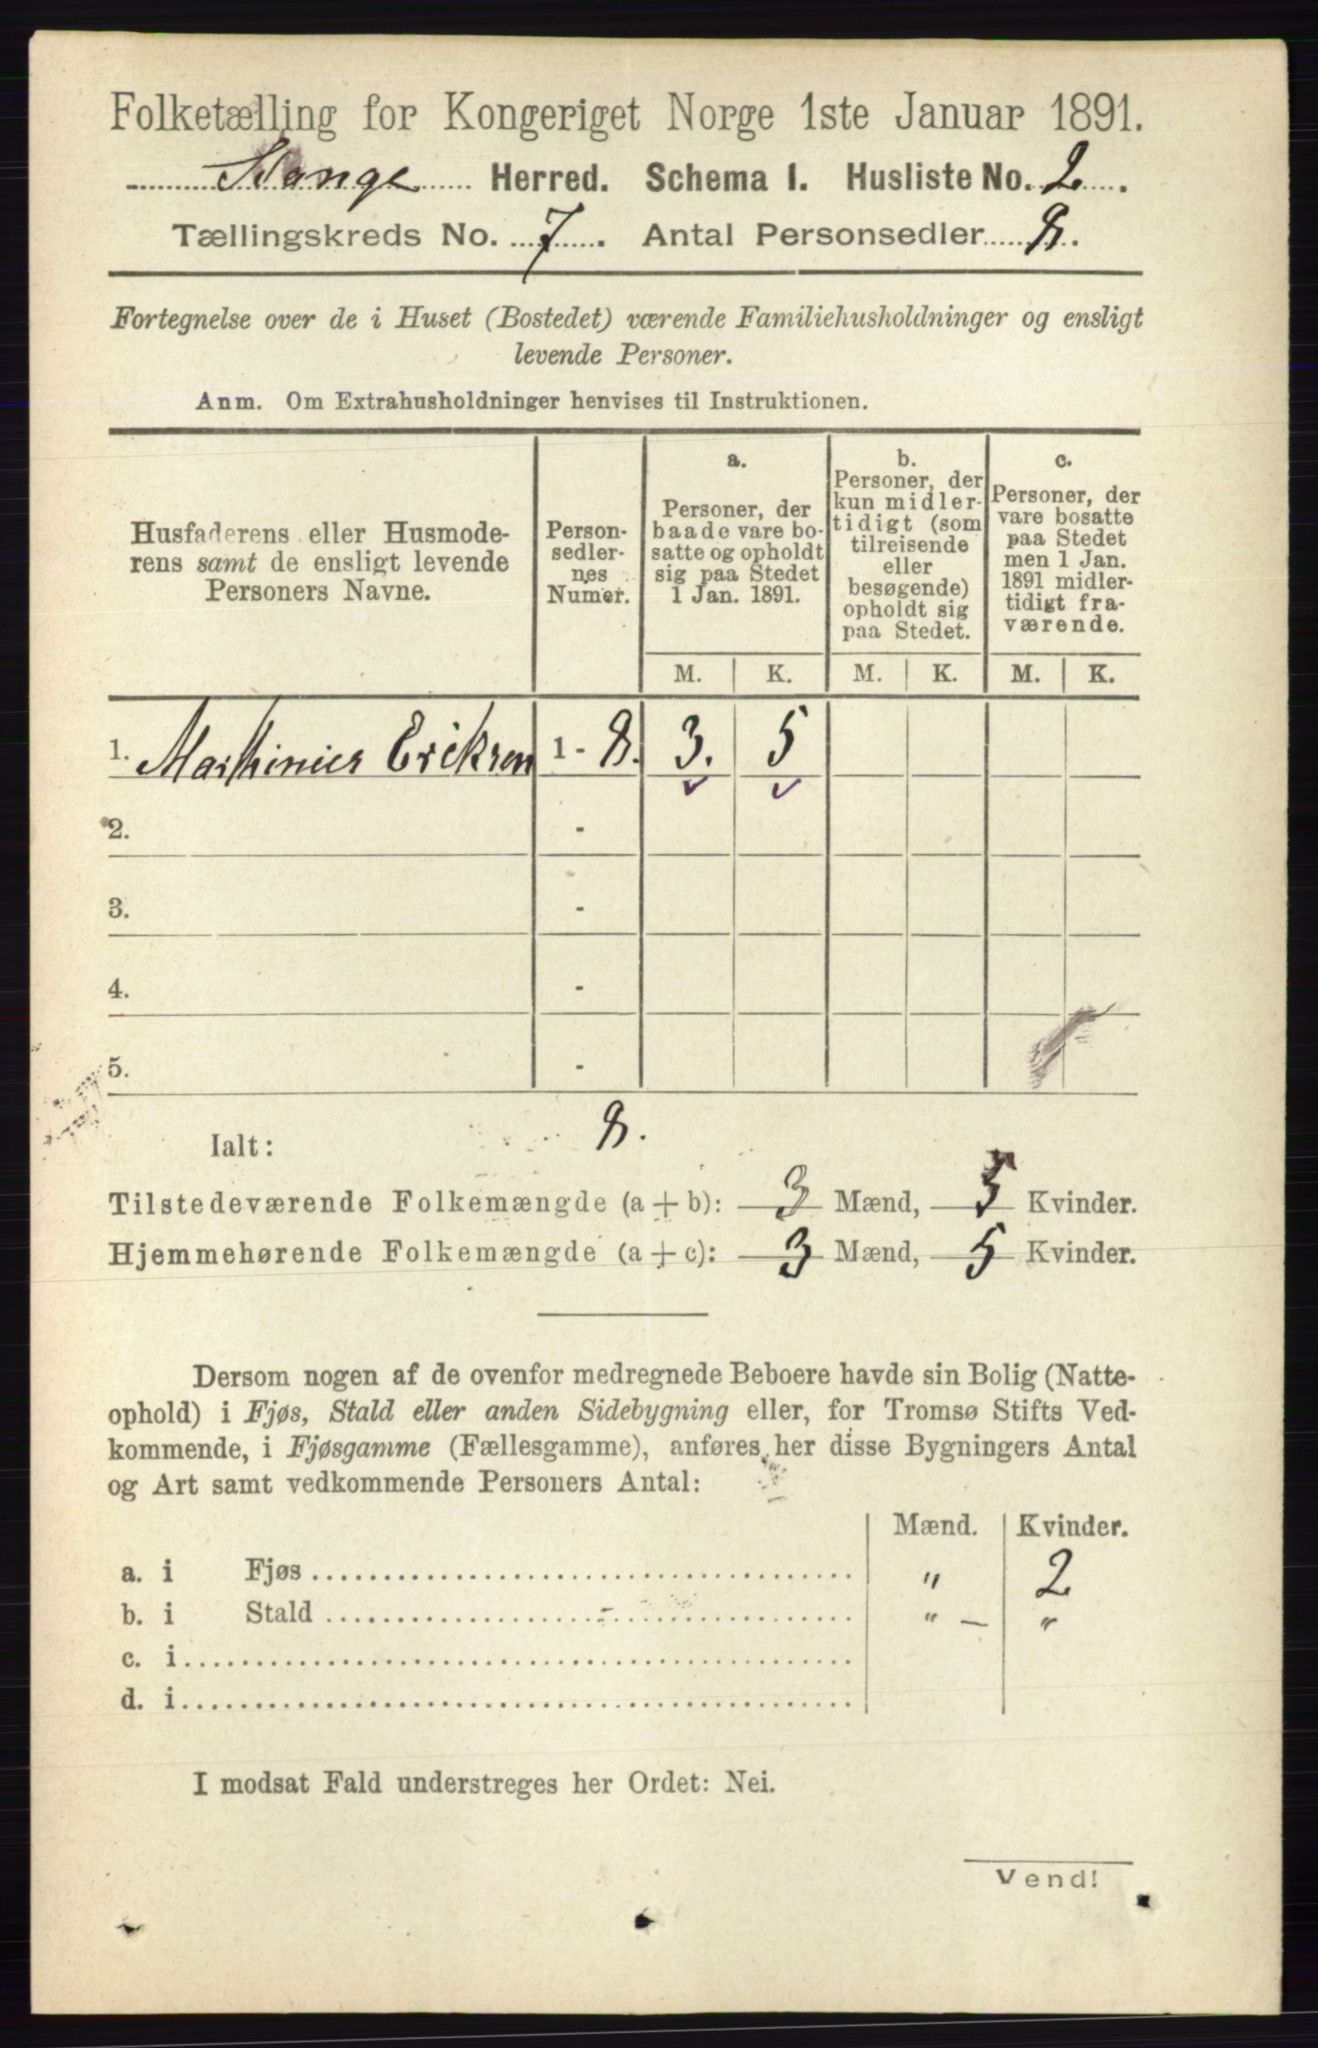 Folketælling for Kongeriget Norge 1ste Januar 1891.
Stange Herred. Schema I. Husliste No. 2.
Tællingskreds No. 7. Antal Personsedler 8.
Fortegnelse over de i Huset (Bostedet) værende Familiehusholdninger og ensligt
levende Personer.
Anm. Om Extrahusholdninger henvises til Instruktionen.
Husfaderens eller Husmode-
rens samt de ensligt levende
Personers Navne.
Person-
sedler-
nes
Numer.
a.
Personer, der
baade vare bo-
satte og opholdt
sig paa Stedet
1 Jan. 1891.
b.
Personer, der
kun midler-
tidigt (som
tilreisende
eller
besøgende)
opholdt sig
paa Stedet.
c.
Personer, der
vare bosatte
paa Stedet
men 1 Jan.
1891 midler-
tidigt fra-
værende.
M. K. M. K. M. K.
1. Marthinius Eriksen 1 - 8. 3. 5
2. -
3. -
4. -
5. -
Ialt: 8.
Tilstedeværende Folkemængde (a + b): 3 Mænd, 5 Kvinder.
Hjemmehørende Folkemængde (a + c): 3 Mænd, 5 Kvinder.
Dersom nogen af de ovenfor medregnede Beboere havde sin Bolig (Natte-
ophold) i Fjøs, Stald eller anden Sidebygning eller, for Tromsø Stifts Ved-
kommende, i Fjøsgamme (Fællesgamme), anføres her disse Bygningers Antal
og Art samt vedkommende Personers Antal:
Mænd. Kvinder.
a. i Fjøs " 2
b. i Stald " - "
c. i
d. i
I modsat Fald understreges her Ordet: Nei.
Vend!